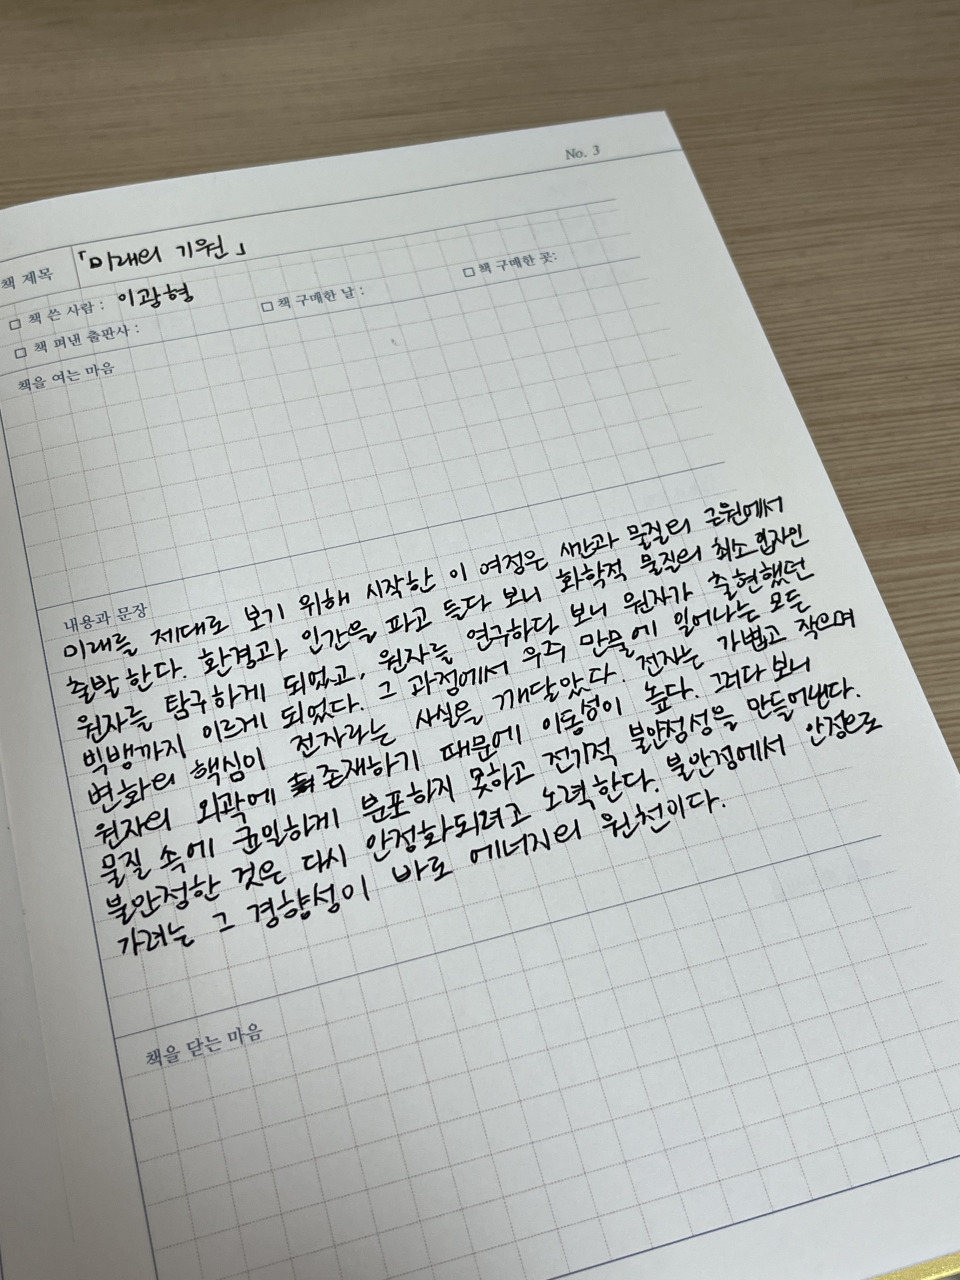 No. 3
책 제목 「미래의 기원」
□ 책 쓴 사람 : 이광형 □ 책 구매한 날 : □ 책 구매한 곳:
□ 책 펴낸 출판사 :
책을 여는 마음
내용과 문장
미래를 제대로 보기 위해 시작한 이 여정은 시간과 물질의 근원에서
출발한다. 환경과 인간을 파고 들다 보니 화학적 물질의 최소 입자인
원자를 탐구하게 되었고, 원자를 연구하다 보니 원자가 출현했던
빅뱅까지 이르게 되었다. 그 과정에서 우주 만물에 일어나는 모든
변화의 핵심이 전자라는 사실을 깨달았다. 전자는 가볍고 작으며
원자의 외곽에 존재하기 때문에 이동성이 높다. 그러다 보니
물질 속에 균일하게 분포하지 못하고 전기적 불안정성을 만들어낸다.
불안정한 것은 다시 안정화되려고 노력한다. 불안정에서 안정으로
가려는 그 경향성이 바로 에너지의 원천이다.
책을 닫는 마음